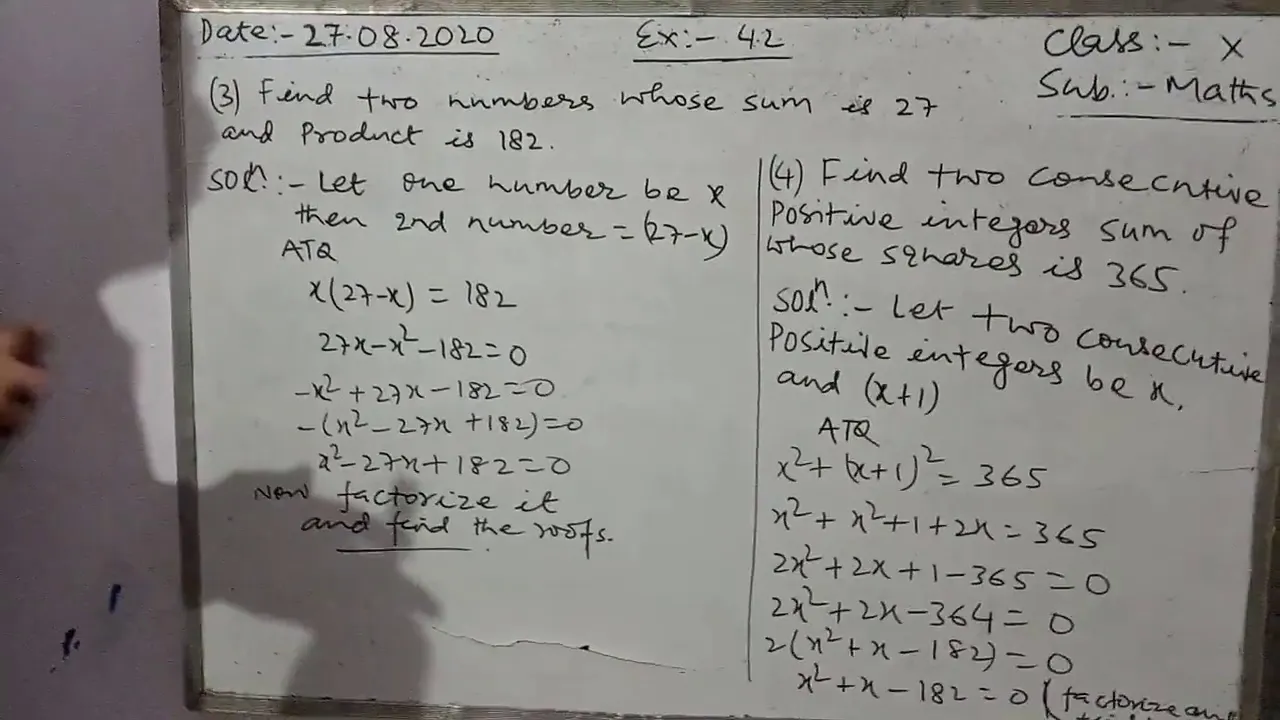 Date:- 27.08.2020
Ex:- 4.2
Class:- X
Sub.:- Maths
(3) Find two numbers whose sum is 27
and Product is 182.
Solⁿ:- Let one number be x
then 2nd number = (27-x)
ATQ
x(27-x) = 182
27x-x²-182=0
-x²+27x-182=0
-(x²-27x+182)=0
x²-27x+182=0
Now factorize it
and find the roots.
(4) Find two consecutive
Positive integers sum of
whose squares is 365.
Solⁿ:- Let two consecutive
Positive integers be x,
and (x+1)
ATQ
x²+(x+1)²=365
x²+x²+1+2x=365
2x²+2x+1-365=0
2x²+2x-364=0
2(x²+x-182)=0
x²+x-182=0 (factorize and